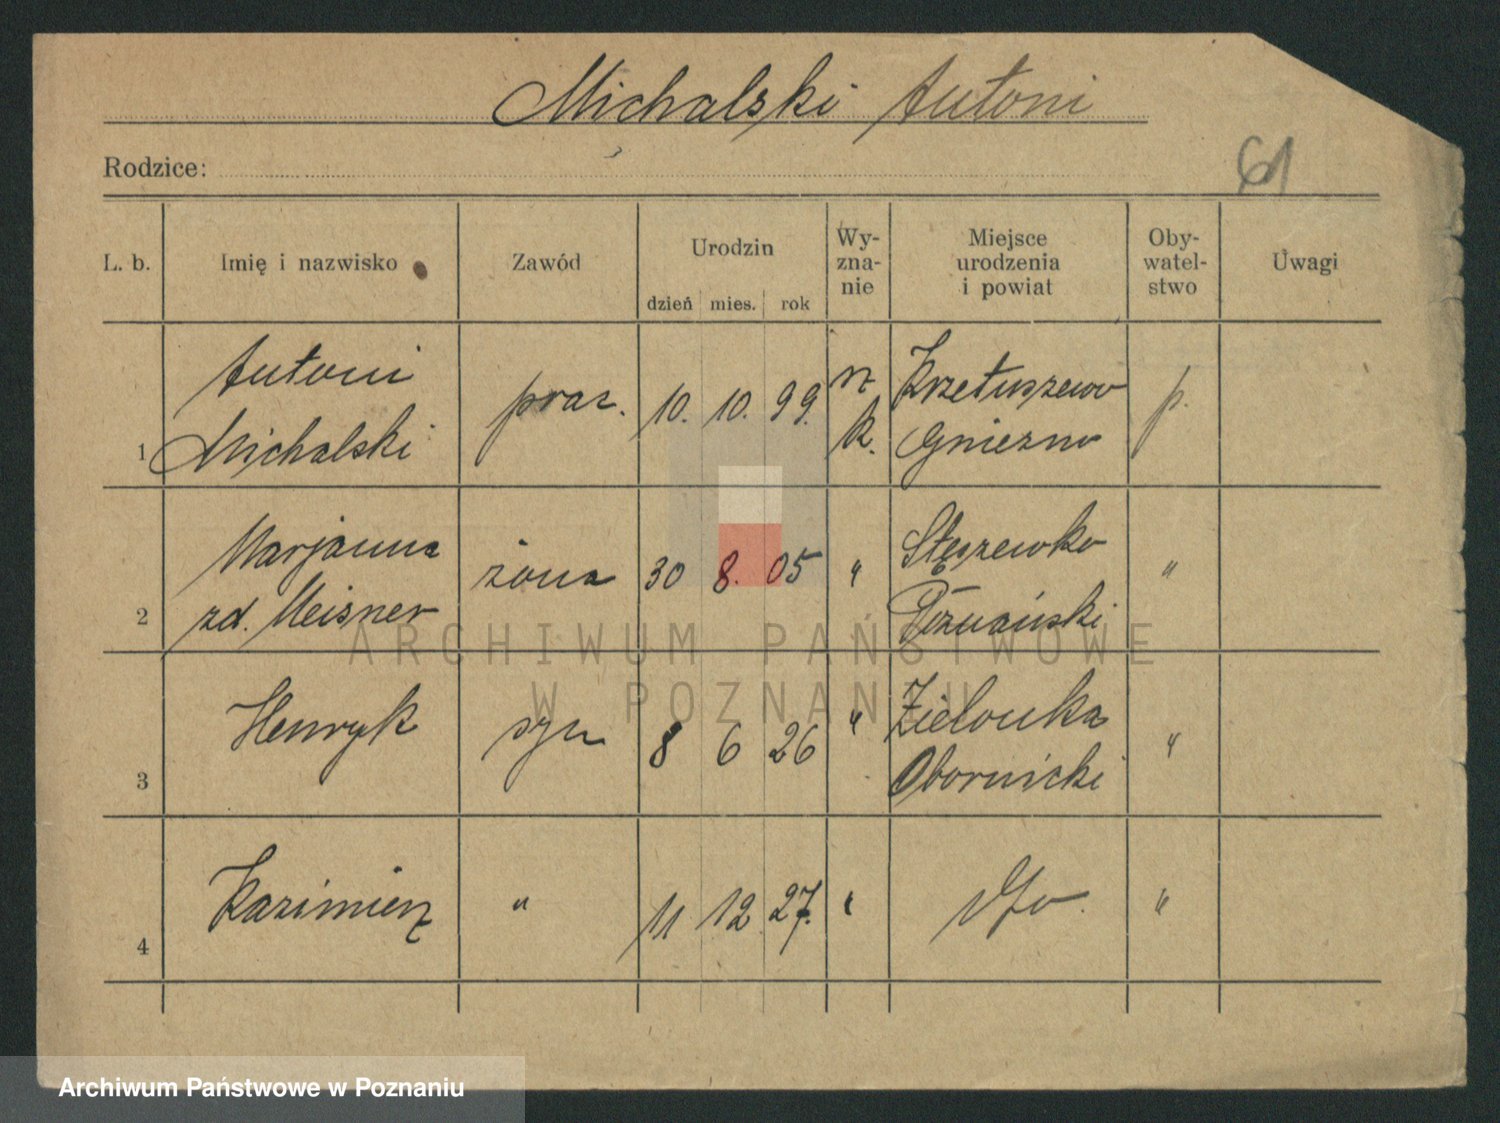 Michalski Antoni
Rodzice:
61
L. b. Imię i nazwisko Zawód Urodzin dzień mies. rok Wy-zna-nie Miejsce urodzenia i powiat Oby-watel-stwo Uwagi
1 Antoni Michalski prac. 10. 10. 99. rz k. Krzetuszewo Gniezno p.
2 Marjanna zd. Meisner żona 30 8. 05 " Stęszewko Poznański "
3 Henryk syn 8 6 26 " Zielonka Obornicki "
4 Kazimierz " 11 12 27. " "
ARCHIWUM PAŃSTWOWE
W POZNANIU
Archiwum Państwowe w Poznaniu